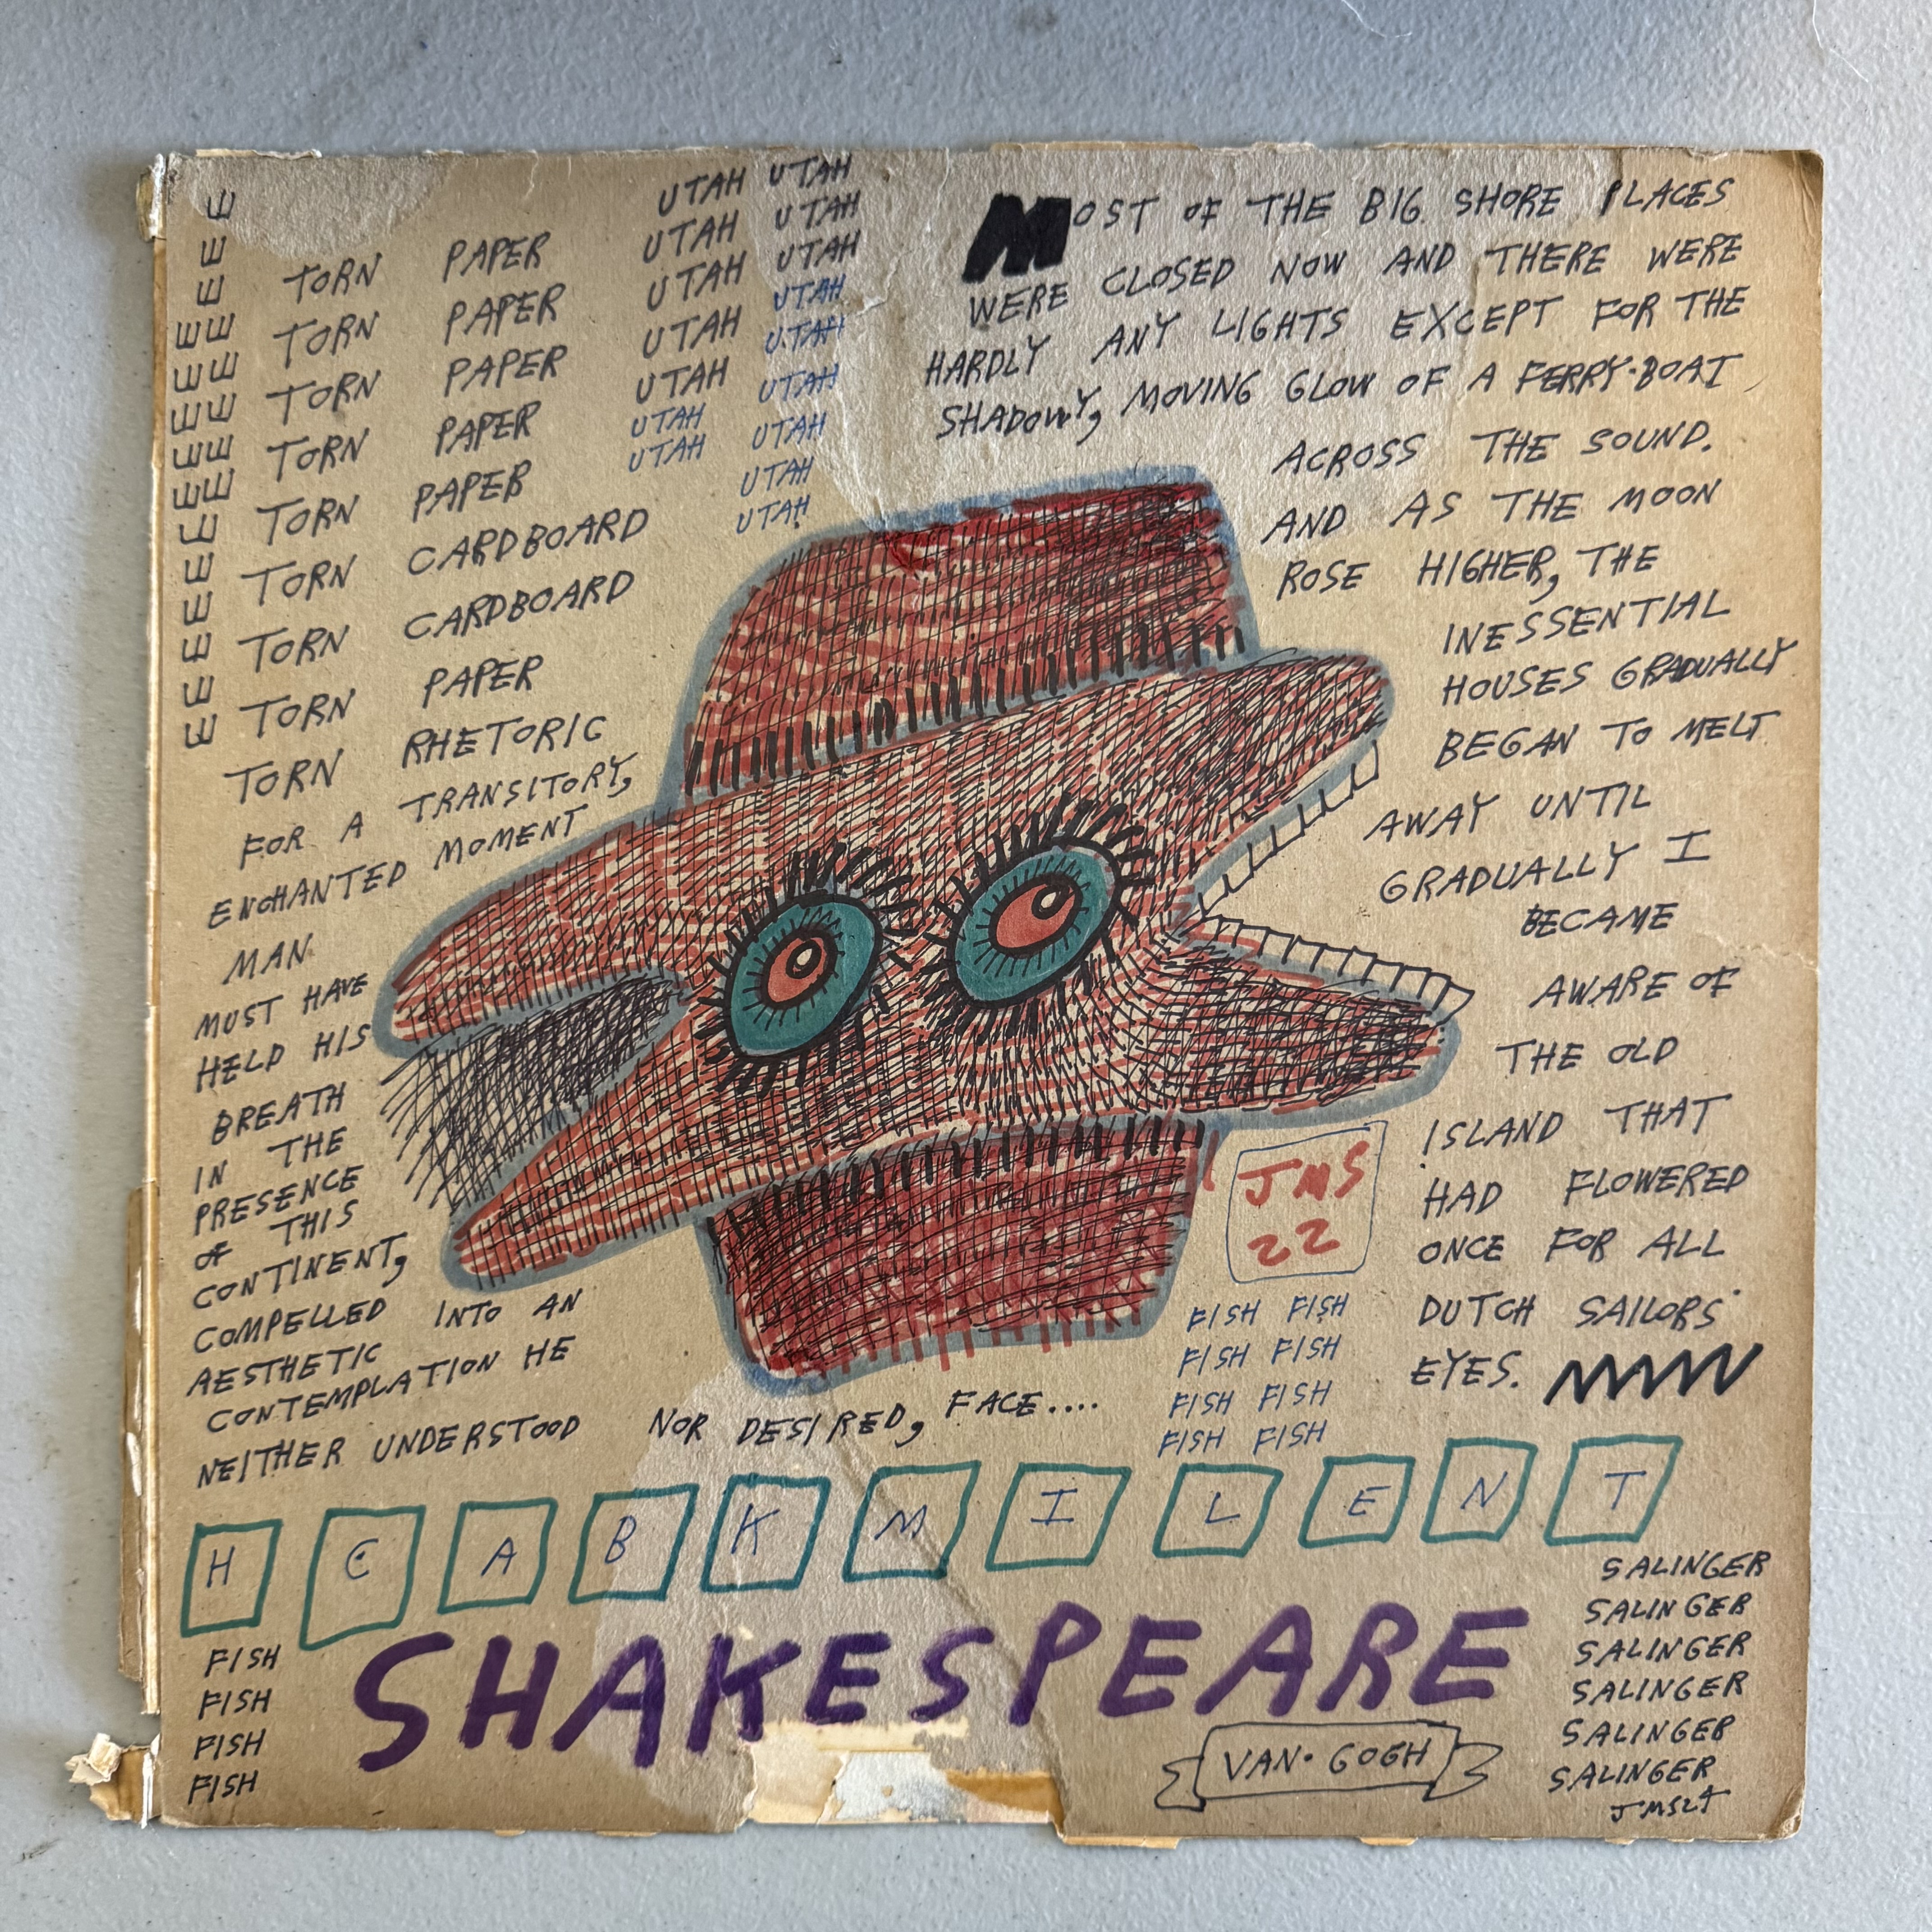 E
E
E
E E
E E
E E
E E
E E
E
E
E
E
E
E
UTAH UTAH
UTAH UTAH
UTAH UTAH
UTAH UTAH
UTAH UTAH
UTAH UTAH
UTAH UTAH
UTAH
UTAH
TORN PAPER
TORN PAPER
TORN PAPER
TORN PAPER
TORN PAPER
TORN CARDBOARD
TORN CARDBOARD
TORN PAPER
TORN RHETORIC
FOR A TRANSITORY,
ENCHANTED MOMENT
MAN
MUST HAVE
HELD HIS
BREATH
IN THE
PRESENCE
OF THIS
CONTINENT,
COMPELLED INTO AN
AESTHETIC
CONTEMPLATION HE
NEITHER UNDERSTOOD NOR DESIRED, FACE....
MOST OF THE BIG SHORE PLACES
WERE CLOSED NOW AND THERE WERE
HARDLY ANY LIGHTS EXCEPT FOR THE
SHADOWY, MOVING GLOW OF A FERRY-BOAT
ACROSS THE SOUND.
AND AS THE MOON
ROSE HIGHER, THE
INESSENTIAL
HOUSES GRADUALLY
BEGAN TO MELT
AWAY UNTIL
GRADUALLY I
BECAME
AWARE OF
THE OLD
ISLAND THAT
HAD FLOWERED
ONCE FOR ALL
DUTCH SAILORS'
EYES.
JMS
22
FISH FISH
FISH FISH
FISH FISH
FISH FISH
H C A B K M I L E N T
FISH
FISH
FISH
FISH
SHAKESPEARE
VAN·GOGH
SALINGER
SALINGER
SALINGER
SALINGER
SALINGER
SALINGER
JMS24